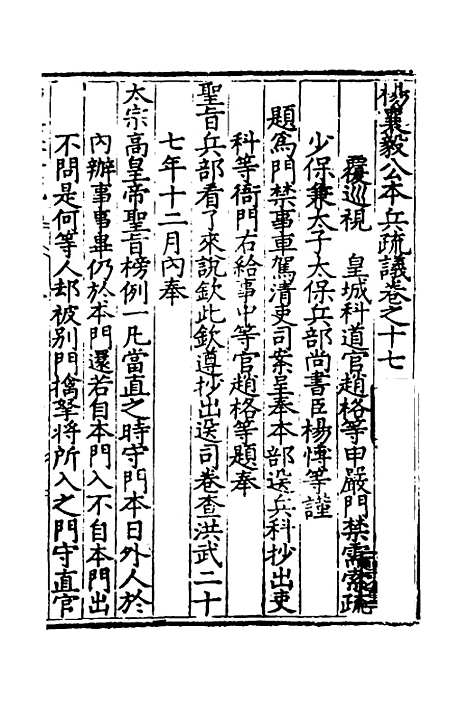 楊襄毅公本兵疏議卷之十七
覆巡視　皇城科道官趙格等申嚴門禁需索疏
少保兼太子太保兵部尚書臣楊博等謹
題為門禁事車駕清吏司案呈奉本部送兵科抄出吏
科等衙門右給事中等官趙格等題奉
聖旨兵部看了來說欽此欽遵抄出送司卷查洪武二十
七年十二月內奉
太宗高皇帝聖旨榜例一凡當直之時守門本日外人於
內辦事事畢仍於本門還若自本門入不自本門出
不問是何等人却被別門擒拏將所入之門守直官